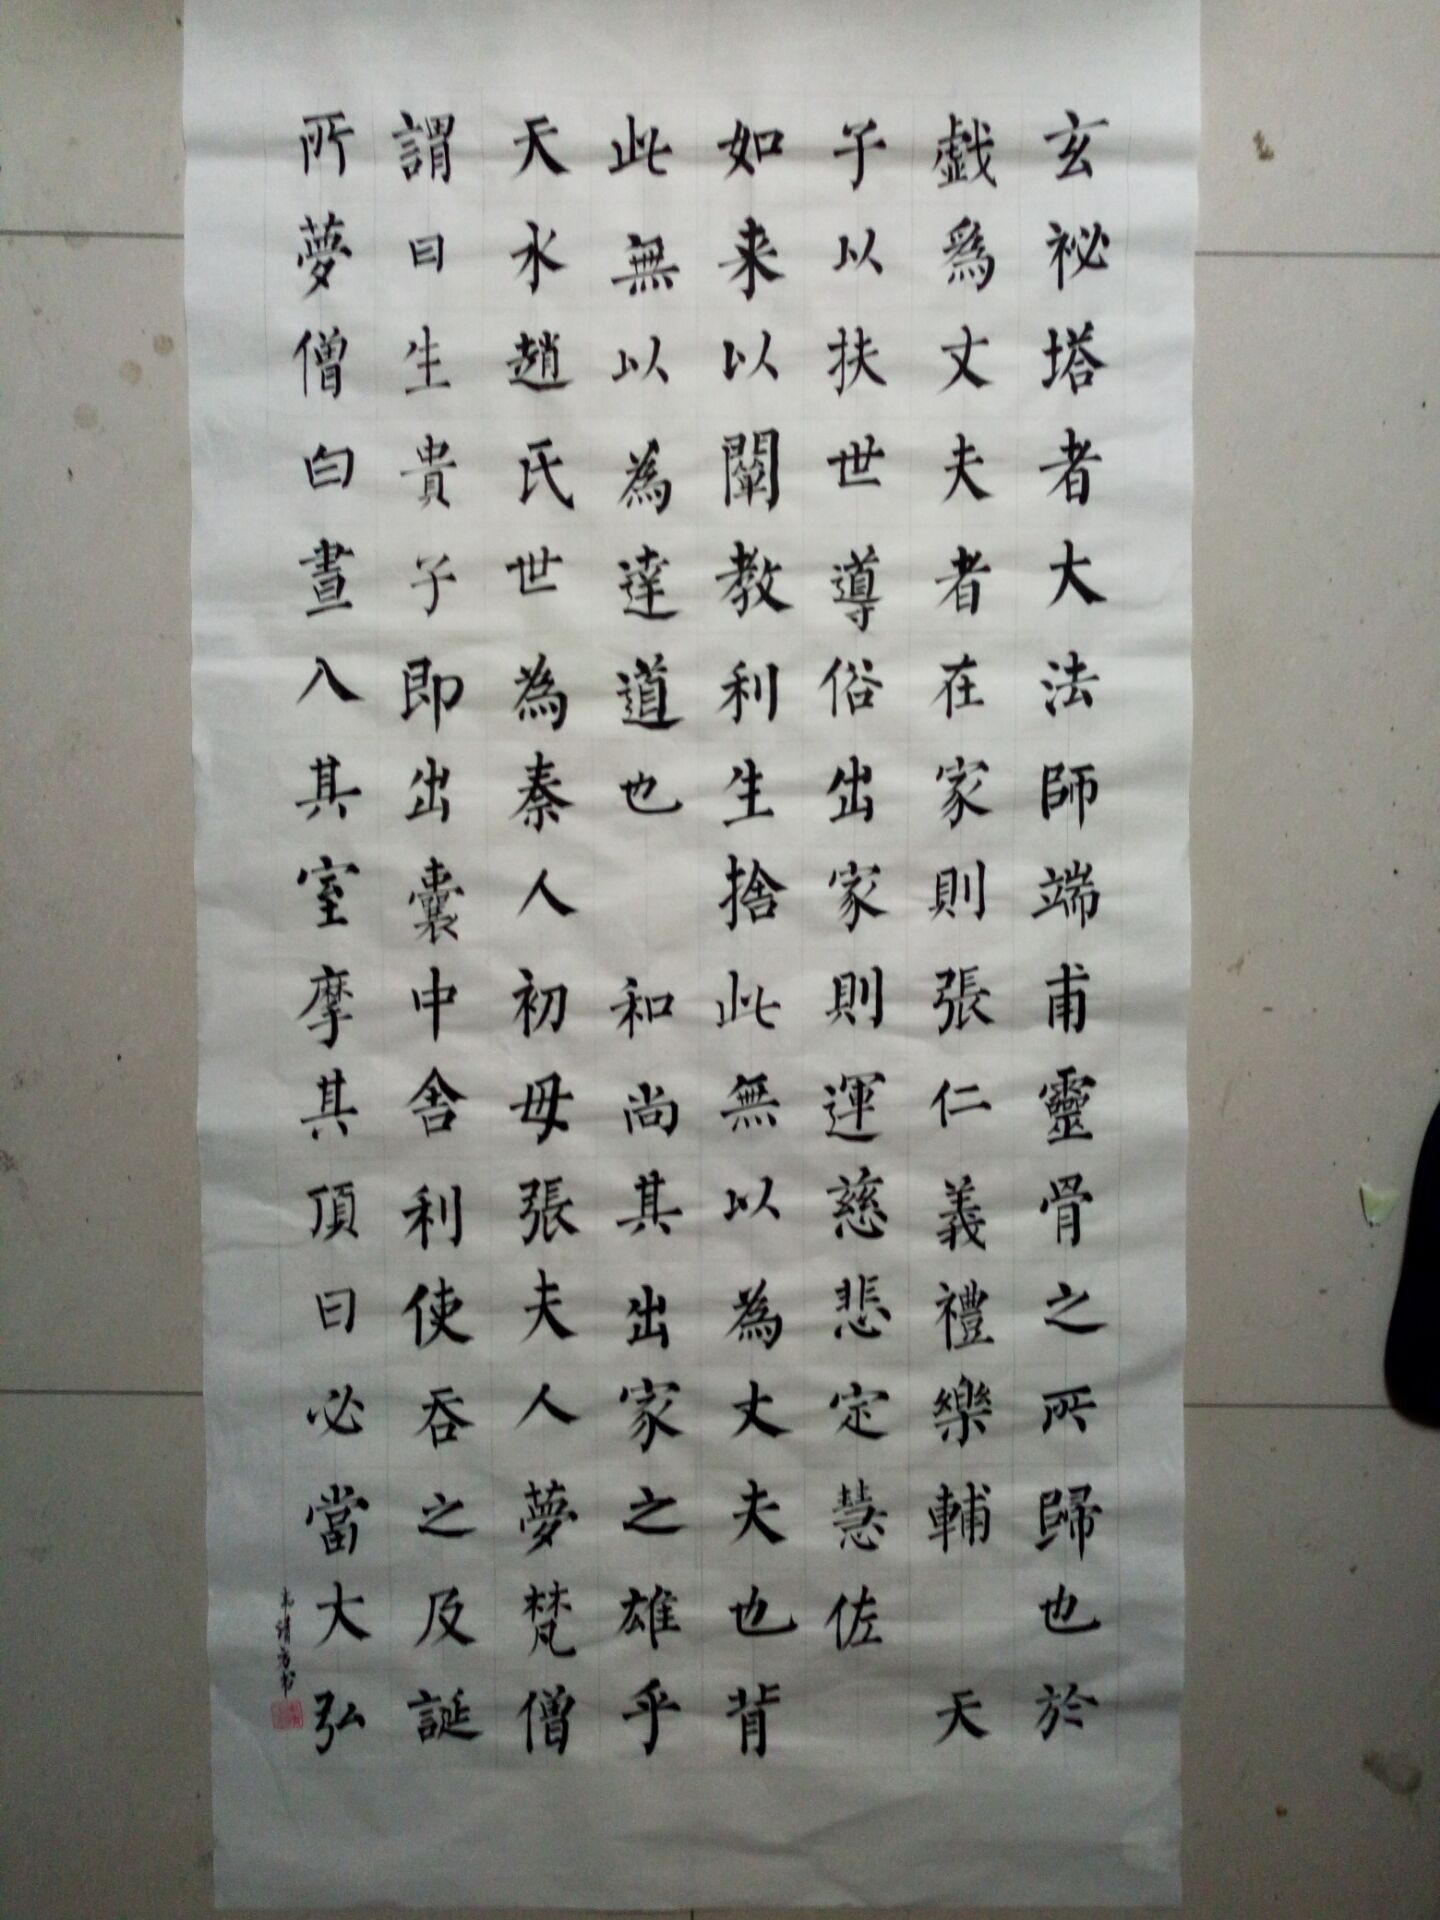 玄祕塔者大法師端甫靈骨之所歸也於
戲為丈夫者在家則張仁義禮樂輔天
子以扶世導俗出家則運慈悲定慧佐
如来以闡教利生捨此無以為丈夫也背
此無以為達道也和尚其出家之雄乎
天水趙氏世為秦人初母張夫人夢梵僧
謂曰生貴子即出囊中舍利使吞之及誕
所夢僧白晝入其室摩其頂曰必當大弘